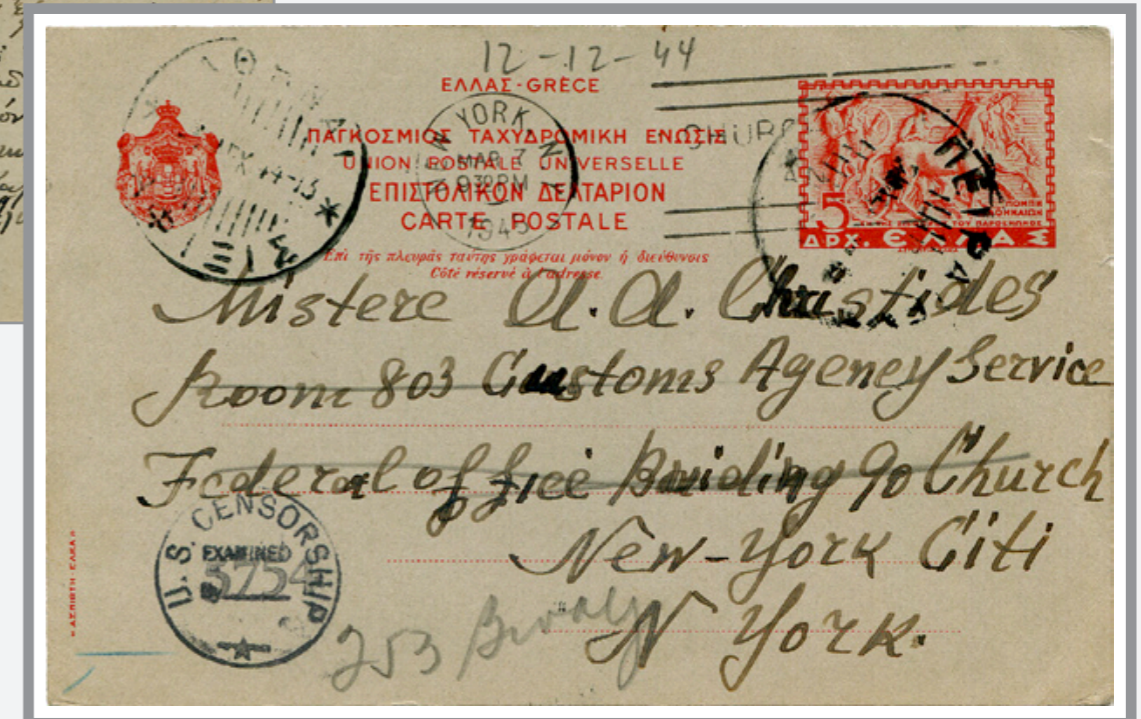 12-12-44
ΕΛΛΑΣ-GRÈCE
ΠΑΓΚΟΣΜΙΟΣ ΤΑΧΥΔΡΟΜΙΚΗ ΕΝΩΣΙΣ
UNION POSTALE UNIVERSELLE
ΕΠΙΣΤΟΛΙΚΟΝ ΔΕΛΤΑΡΙΟΝ
CARTE POSTALE
Ἐπὶ τῆς πλευρᾶς ταύτης γράφεται μόνον ἡ διεύθυνσις
Côté réservé à l'adresse.
NEW YORK, N.Y.
MAR 7
1945
CHURC
ΠΕΙΡΑ
5
ΔΡΧ. ΕΛΛΑΣ
Mistere A. A. Christides
Room 803 Customs Agency Service
Federal office Buiding 90 Church
New-York Citi
N York.
U.S. CENSORSHIP
EXAMINED
5754
253 
«ΑΣΠΙΩΤΗ-ΕΛΚΑ»